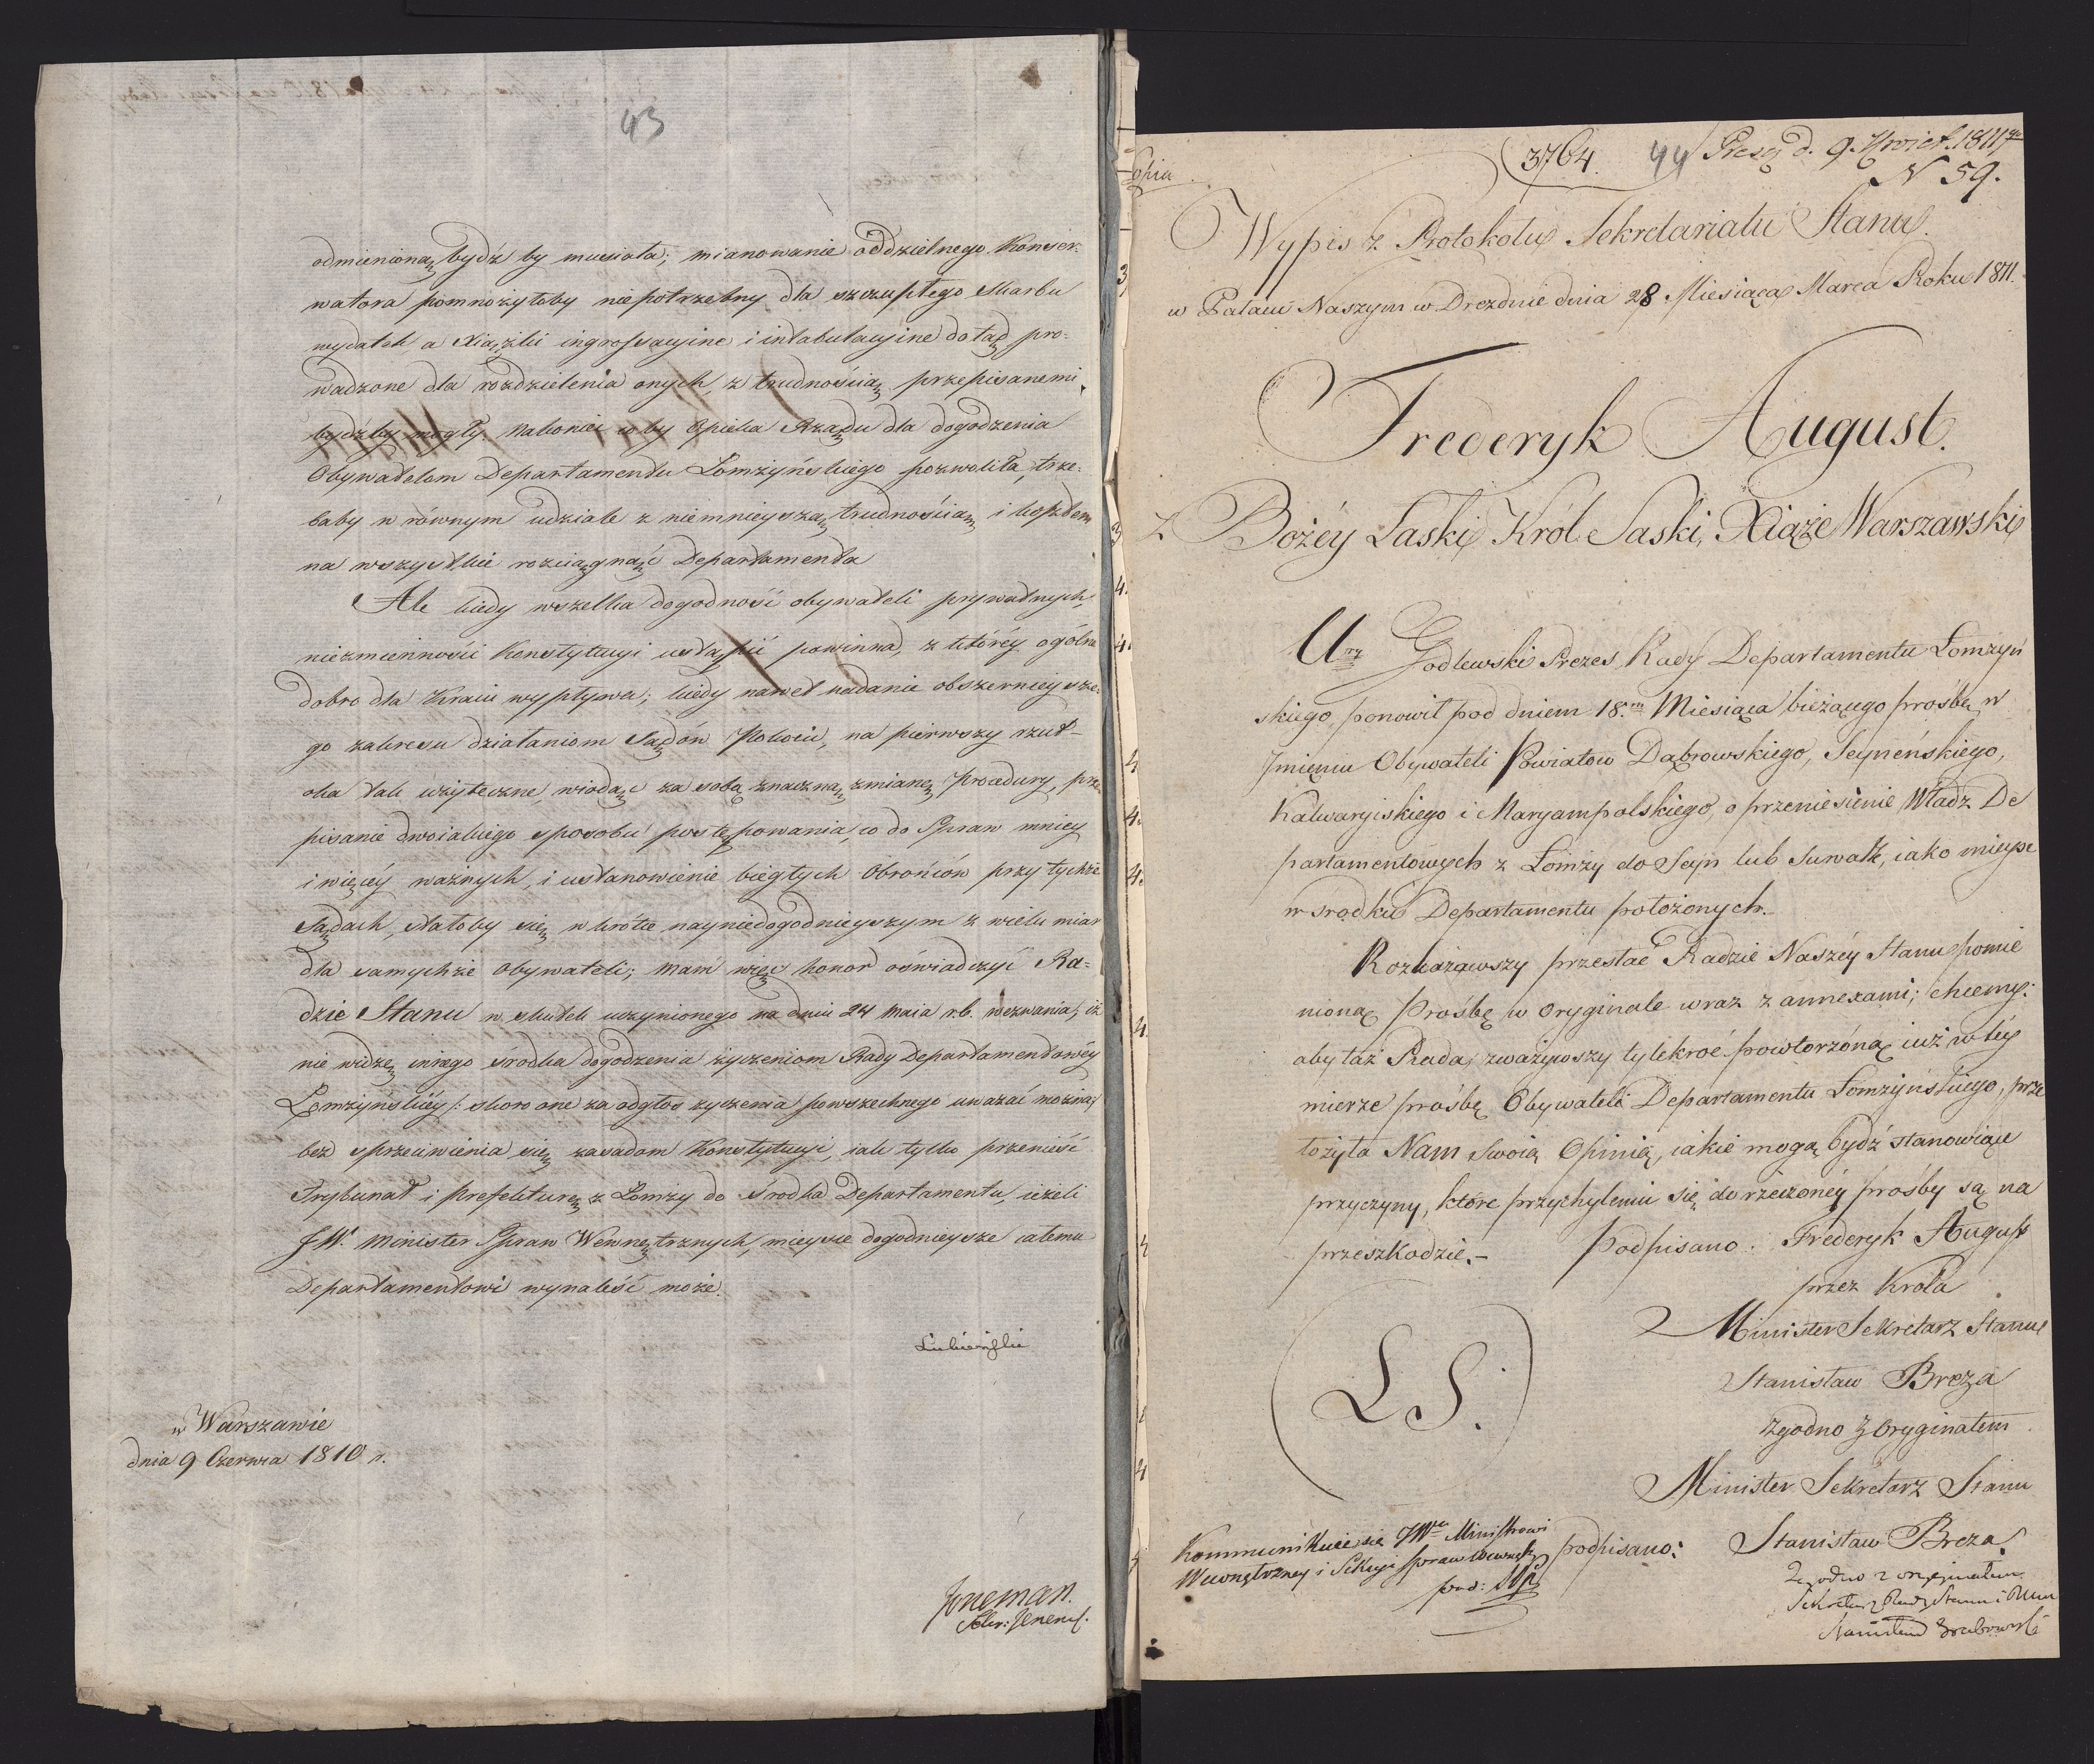 43
odmienioną bydź by musiała; mianowanie oddzielnego Konser-
watora pomnożyłoby niepotrzebny dla szczupłego Skarbu
wydatek, a Xiążki ingrossacyine i intabulacyine dotąd pro-
wadzone dla rozdzielenia onych, z trudnością przepisanemi
bydźby mogły. Nakoniec coby Opieka Rządu dla dogodzenia
Obywatelom Departamentu Łomżyńskiego pozwoliła, trze-
baby w równym udziale z niemnieyszą trudnością i kosztem
na wszystkie rozciągnąć Departamenta
Ale kiedy wszelka dogodność obywateli prywatnych,
niezmienności Konstytucyi ustąpić powinna, z którey ogólne
dobro dla Kraiu wypływa; kiedy nawet nadanie obszernieysze-
go zakresu działaniom Sądów Pokoiu, na pierwszy rzut
oka tak użyteczne, wiodąc za sobą znaczną zmianę procedury, prze-
pisanie dwoiakiego sposobu postępowania, co do Spraw mniey
i więcéy ważnych, i ustanowienie biegłych Obrońców przy tychże
Sądach, stałoby się wkrótce nayniedogodnieyszym z wielu miar
dla samychże obywateli; mam więc honor oświadczyć Ra-
dzie Stanu w skutek uczynionego na dniu 24 maia r.b. wezwania, iż
nie widzę innego środka dogodzenia życzeniom Rady Departamentowéy
Łomżyńskiéy /: skoro one za odgłos życzenia powszechnego uważać można :/
bez sprzeciwienia się zasadom Konstytucyi, iak tylko przenieść
Trybunał i Prefekturę z Łomży do środka Departamentu, ieżeli
JW. Minister Spraw Wewnętrznych, mieysce dogodnieysze całemu
Departamentowi wynaleść może.
Łubieński
w Warszawie
dnia 9 Czerwca 1810 r.
Joneman.
Sekr: Jeneral.
Kopia
3764. 44 Preseg d. 9. Kwiet. 1811go
N 59.
Wypis z Protokołu Sekretariatu Stanu.
w Pałacu Naszym w Dreznie dnia 28 Miesiąca Marca Roku 1811.
Frederyk August.
z Bożéy Łaski Król Saski, Xiąże Warszawski
Ur. Godlewski Prezes Rady Departamentu Łomzyń
skiego, ponowił pod dniem 18.m Miesiąca bieżącego prośbę w
Jmieniu Obywateli Powiatow Dąbrowskiego, Seyneńskiego,
Kalwaryiskiego i Maryampolskiego, o przeniesienie Władz De
partamentowych z Łomży do Seyn lub Suwałk, iako mieysc
w srodku Departamentu położonych.
Rozkazawszy przesłać Radzie Naszéy Stanu pomie
nioną Prośbę w oryginale wraz z annexami; chcemy:
aby taż Rada, zważywszy tylekroć powtorzoną iuż w téy
mierze prośbę Obywateli Departamentu Łomżyńskiego, prze
łożyła Nam swoią Opinią, iakie mogą bydź stanowiące
przyczyny, które przychyleniu się do rzeczonéy prośby są na
przeszkodzie.- Podpisano: Frederyk August
przez Krola
Minister Sekretarz Stanu
Stanisław Breza
Zgodno z Oryginałem
L S.
Minister Sekretarz Stanu
podpisano: Stanisław Breza
Kommunikuie się JWu Ministrowi
Wewnętrzney i Sekcyi spraw wewnętr
Zgodno z oryginałem
Sekretarz Rady Stanu i Min
Stanisław Grabowski